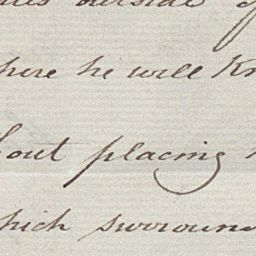 outside of
here he will Kn
out placing
hich surroun